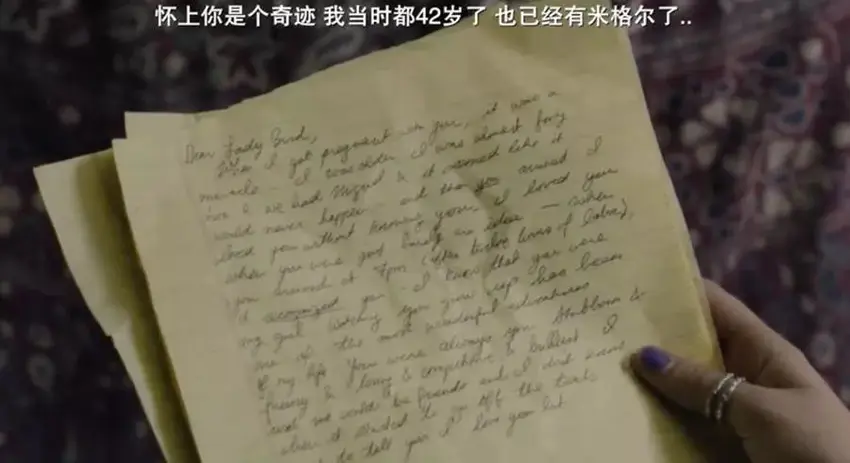 怀上你是个奇迹 我当时都42岁了 也已经有米格尔了..
Dear Lady Bird,
When I got pregnant with you, it was a
miracle - I was older. I was almost forty
two & we had Miguel & it seemed like it
would never happen - and then you arrived I
loved you without knowing you, I loved you
when you were just barely an idea — when
you arrived at 7pm (after twelve hours of labor),
I recognized you - I knew that you were
my girl. Watching you grow up has been
one of the most wonderful adventures
of my life. You were always you. Stubborn &
funny & loving & competitive & brilliant I
wish we could be friends and I don't know
when it started to go off the tracks
to tell you I love you but